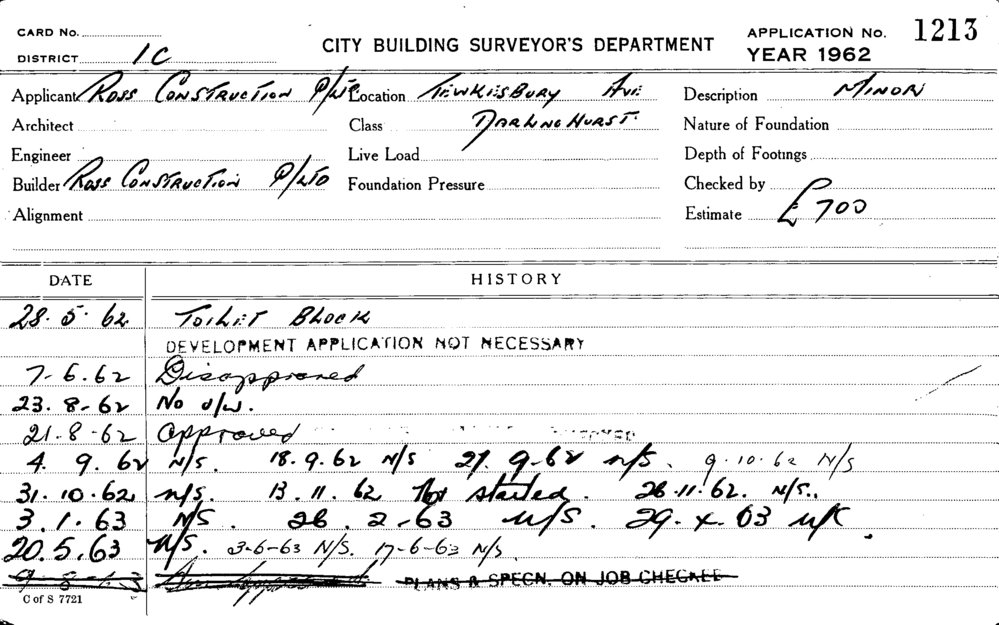 CARD No.
DISTRICT 1C
CITY BUILDING SURVEYOR'S DEPARTMENT
APPLICATION No. 1213
YEAR 1962
Applicant Ross Construction P/Ltd Location Tewkesbury Ave Description Minor
Architect Class Darlinghurst. Nature of Foundation
Engineer Live Load Depth of Footings
Builder Ross Construction P/Ltd Foundation Pressure Checked by
Alignment Estimate £700
DATE HISTORY
28.5.62 Toilet Block
DEVELOPMENT APPLICATION NOT NECESSARY
7-6.62 Disapproved
23.8-62 No o/w.
21.8-62 Approved
4.9.62 N/S. 18.9.62 N/S 27.9-62 n/s. 9-10-62 N/S
31.10.62 n/s. 13.11.62 Not started. 26.11.62. N/S.
3.1.63 N/S. 26.2-63 N/S. 29.4.63
20.5.63 N/S. 3-6-63 N/S. 17-6-63 N/S
PLANS & SPECN. ON JOB CHECKED
C of S 7721